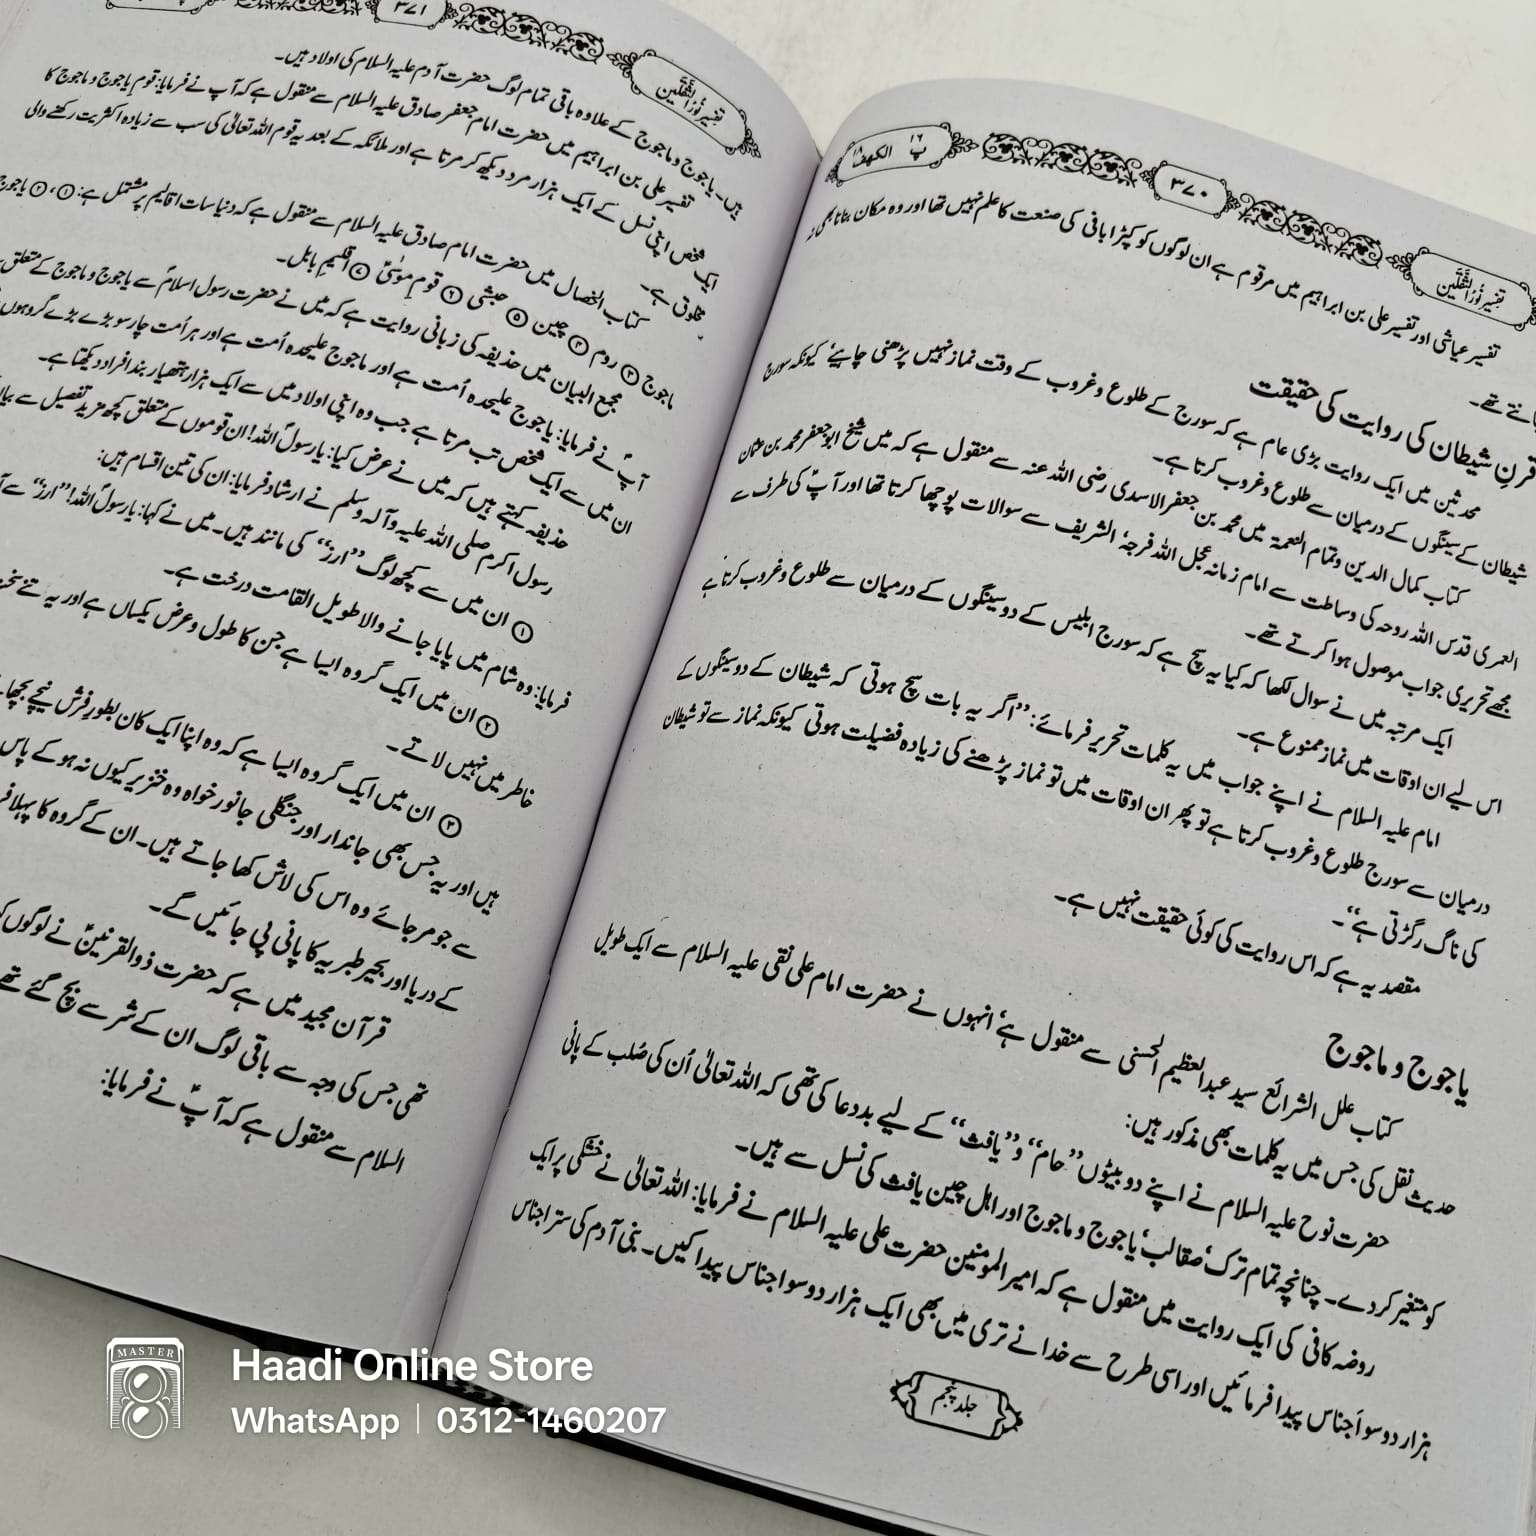 تفسیر نُورُ الثَّقَلَین
۳۷۰
پ ۱۶ الکھف ۱۸
تفسیر عیاشی اور تفسیر علی بن ابراہیم میں مرقوم ہے ان لوگوں کو کپڑا بافی کی صنعت کا علم نہیں تھا اور وہ مکان بنانا بھی نہ
جانتے تھے۔
قرنِ شیطان کی روایت کی حقیقت
محدثین میں ایک روایت بڑی عام ہے کہ سورج کے طلوع و غروب کے وقت نماز نہیں پڑھنی چاہیے، کیونکہ سورج
شیطان کے سینگوں کے درمیان سے طلوع و غروب کرتا ہے۔
کتاب کمال الدین وتمام النعمۃ میں محمد بن جعفر الاسدی رضی اللہ عنہ سے منقول ہے کہ میں شیخ ابوجعفر محمد بن عثمان
العمری قدس اللہ روحہ کی وساطت سے امام زمانہ عجل اللہ فرجہٗ الشریف سے سوالات پوچھا کرتا تھا اور آپؑ کی طرف سے
مجھے تحریری جواب موصول ہوا کرتے تھے۔
ایک مرتبہ میں نے سوال لکھا کہ کیا یہ سچ ہے کہ سورج ابلیس کے دو سینگوں کے درمیان سے طلوع و غروب کرتا ہے
اس لیے ان اوقات میں نماز ممنوع ہے۔
امام علیہ السلام نے اپنے جواب میں یہ کلمات تحریر فرمائے: ’’اگر یہ بات سچ ہوتی کہ شیطان کے دو سینگوں کے
درمیان سے سورج طلوع و غروب کرتا ہے تو پھر ان اوقات میں تو نماز پڑھنے کی زیادہ فضیلت ہوتی کیونکہ نماز سے تو شیطان
کی ناک رگڑتی ہے‘‘۔
مقصد یہ ہے کہ اس روایت کی کوئی حقیقت نہیں ہے۔
یاجوج و ماجوج
کتاب علل الشرائع سید عبدالعظیم الحسنی سے منقول ہے، انہوں نے حضرت امام علی نقی علیہ السلام سے ایک طویل
حدیث نقل کی جس میں یہ کلمات بھی مذکور ہیں:
حضرت نوح علیہ السلام نے اپنے دو بیٹوں ’’حام‘‘ و ’’یافث‘‘ کے لیے بددعا کی تھی کہ اللہ تعالٰی اُن کی صُلب کے پانی
کو متغیر کردے۔ چنانچہ تمام ترک، صقالب، یاجوج و ماجوج اور اہل چین یافث کی نسل سے ہیں۔
روضہ کافی کی ایک روایت میں منقول ہے کہ امیرالمومنین حضرت علی علیہ السلام نے فرمایا: اللہ تعالٰی نے خشکی پر ایک
ہزار دو سو اجناس پیدا فرمائیں اور اسی طرح سے خدا نے تری میں بھی ایک ہزار دو سو اجناس پیدا کیں۔ بنی آدم کی ستر اجناس
جلد پنجم
تفسیر نُورُ الثَّقَلَین
۳۷۱
ہیں۔ یاجوج و ماجوج کے علاوہ باقی تمام لوگ حضرت آدم علیہ السلام کی اولاد ہیں۔
تفسیر علی بن ابراہیم میں حضرت امام جعفر صادق علیہ السلام سے منقول ہے کہ آپ نے فرمایا: قوم یاجوج و ماجوج کا
ایک شخص اپنی نسل کے ایک ہزار مرد دیکھ کر مرتا ہے اور ملائکہ کے بعد یہ قوم اللہ تعالٰی کی سب سے زیادہ اکثریت رکھنے والی
مخلوق ہے۔
کتاب الخصال میں حضرت امام صادق علیہ السلام سے منقول ہے کہ دنیا سات اقالیم پر مشتمل ہے: ①، ② یاجوج
ماجوج ③ روم ④ چین ⑤ حبشی ⑥ قومِ موسٰیؑ ⑦ اقلیمِ بابل۔
مجمع البیان میں حذیفہ کی زبانی روایت ہے کہ میں نے حضرت رسولِ اسلامؐ سے یاجوج و ماجوج کے متعلق
آپؐ نے فرمایا: یاجوج علیحدہ اُمت ہے اور ماجوج علیحدہ اُمت ہے اور ہر اُمت چار سو بڑے بڑے گروہوں
ان میں سے ایک شخص تب مرتا ہے جب وہ اپنی اولاد میں سے ایک ہزار ہتھیار بند افراد دیکھتا ہے۔
حذیفہ کہتے ہیں کہ میں نے عرض کیا: یارسولؐ اللہ! ان قوموں کے متعلق کچھ مزید تفصیل سے
رسول اکرم صلی اللہ علیہ وآلہ وسلم نے ارشاد فرمایا: ان کی تین اقسام ہیں:
① ان میں سے کچھ لوگ ’’ارز‘‘ کی مانند ہیں۔ میں نے کہا: یارسولؐ اللہ! ’’ارز‘‘ سے
فرمایا: وہ شام میں پایا جانے والا طویل القامت درخت ہے۔
② ان میں ایک گروہ ایسا ہے جن کا طول و عرض یکساں ہے اور یہ
خاطر میں نہیں لاتے۔
③ ان میں ایک گروہ ایسا ہے کہ وہ اپنا ایک کان بطورِ فرش نیچے
ہیں اور یہ جس بھی جاندار اور جنگلی جانور خواہ وہ خنزیر کیوں نہ ہو کے پاس
سے جو مرجائے وہ اس کی لاش کھا جاتے ہیں۔ ان کے گروہ کا پہلا
کے دریا اور بحیر طبریہ کا پانی پی جائیں گے۔
قرآن مجید میں ہے کہ حضرت ذوالقرنینؑ نے لوگوں
تھی جس کی وجہ سے باقی لوگ ان کے شر سے بچ گئے تھے
السلام سے منقول ہے کہ آپؑ نے فرمایا:
MASTER
Haadi Online Store
WhatsApp | 0312-1460207